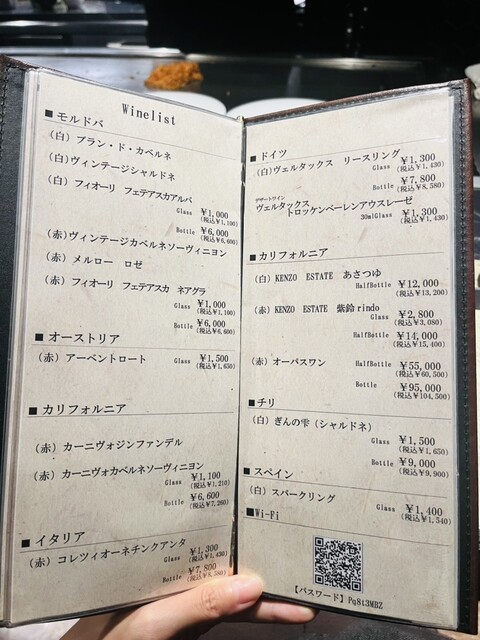 Winelist
■ モルドバ
(白) ブラン・ド・カベルネ
(白) ヴィンテージシャルドネ
(白) フィオーリ フェテアスカアルバ
Glass ¥1,000
(税込¥1,100)
Bottle ¥6,000
(税込¥6,600)
(赤) ヴィンテージカベルネソーヴィニヨン
(赤) メルロー ロゼ
(赤) フィオーリ フェテアスカ ネアグラ
Glass ¥1,000
(税込¥1,100)
Bottle ¥6,000
(税込¥6,600)
■ オーストリア
(赤) アーベントロート Glass ¥1,500
(税込¥1,650)
■ カリフォルニア
(赤) カーニヴォジンファンデル
(赤) カーニヴォカベルネソーヴィニヨン
Glass ¥1,100
(税込¥1,210)
Bottle ¥6,600
(税込¥7,260)
■ イタリア
(赤) コレツィオーネチンクアンタ
Glass ¥1,300
(税込¥1,430)
Bottle ¥7,800
(税込¥8,580)
■ ドイツ
(白) ヴェルタックス リースリング
Glass ¥1,300
(税込¥1,430)
Bottle ¥7,800
(税込¥8,580)
デザートワイン
ヴェルタックス
トロッケンベーレンアウスレーゼ
30mlGlass ¥1,300
(税込¥1,430)
■ カリフォルニア
(白) KENZO ESTATE あさつゆ
HalfBottle ¥12,000
(税込¥13,200)
(赤) KENZO ESTATE 紫鈴rindo
Glass ¥2,800
(税込¥3,080)
HalfBottle ¥14,000
(税込¥15,400)
(赤) オーパスワン HalfBottle ¥55,000
(税込¥60,500)
Bottle ¥95,000
(税込¥104,500)
■ チリ
(白) ぎんの雫 (シャルドネ)
Glass ¥1,500
(税込¥1,650)
Bottle ¥9,000
(税込¥9,900)
■ スペイン
(白) スパークリング
Glass ¥1,400
(税込¥1,540)
■Wi-Fi
【パスワード】Pq8t3MBZ